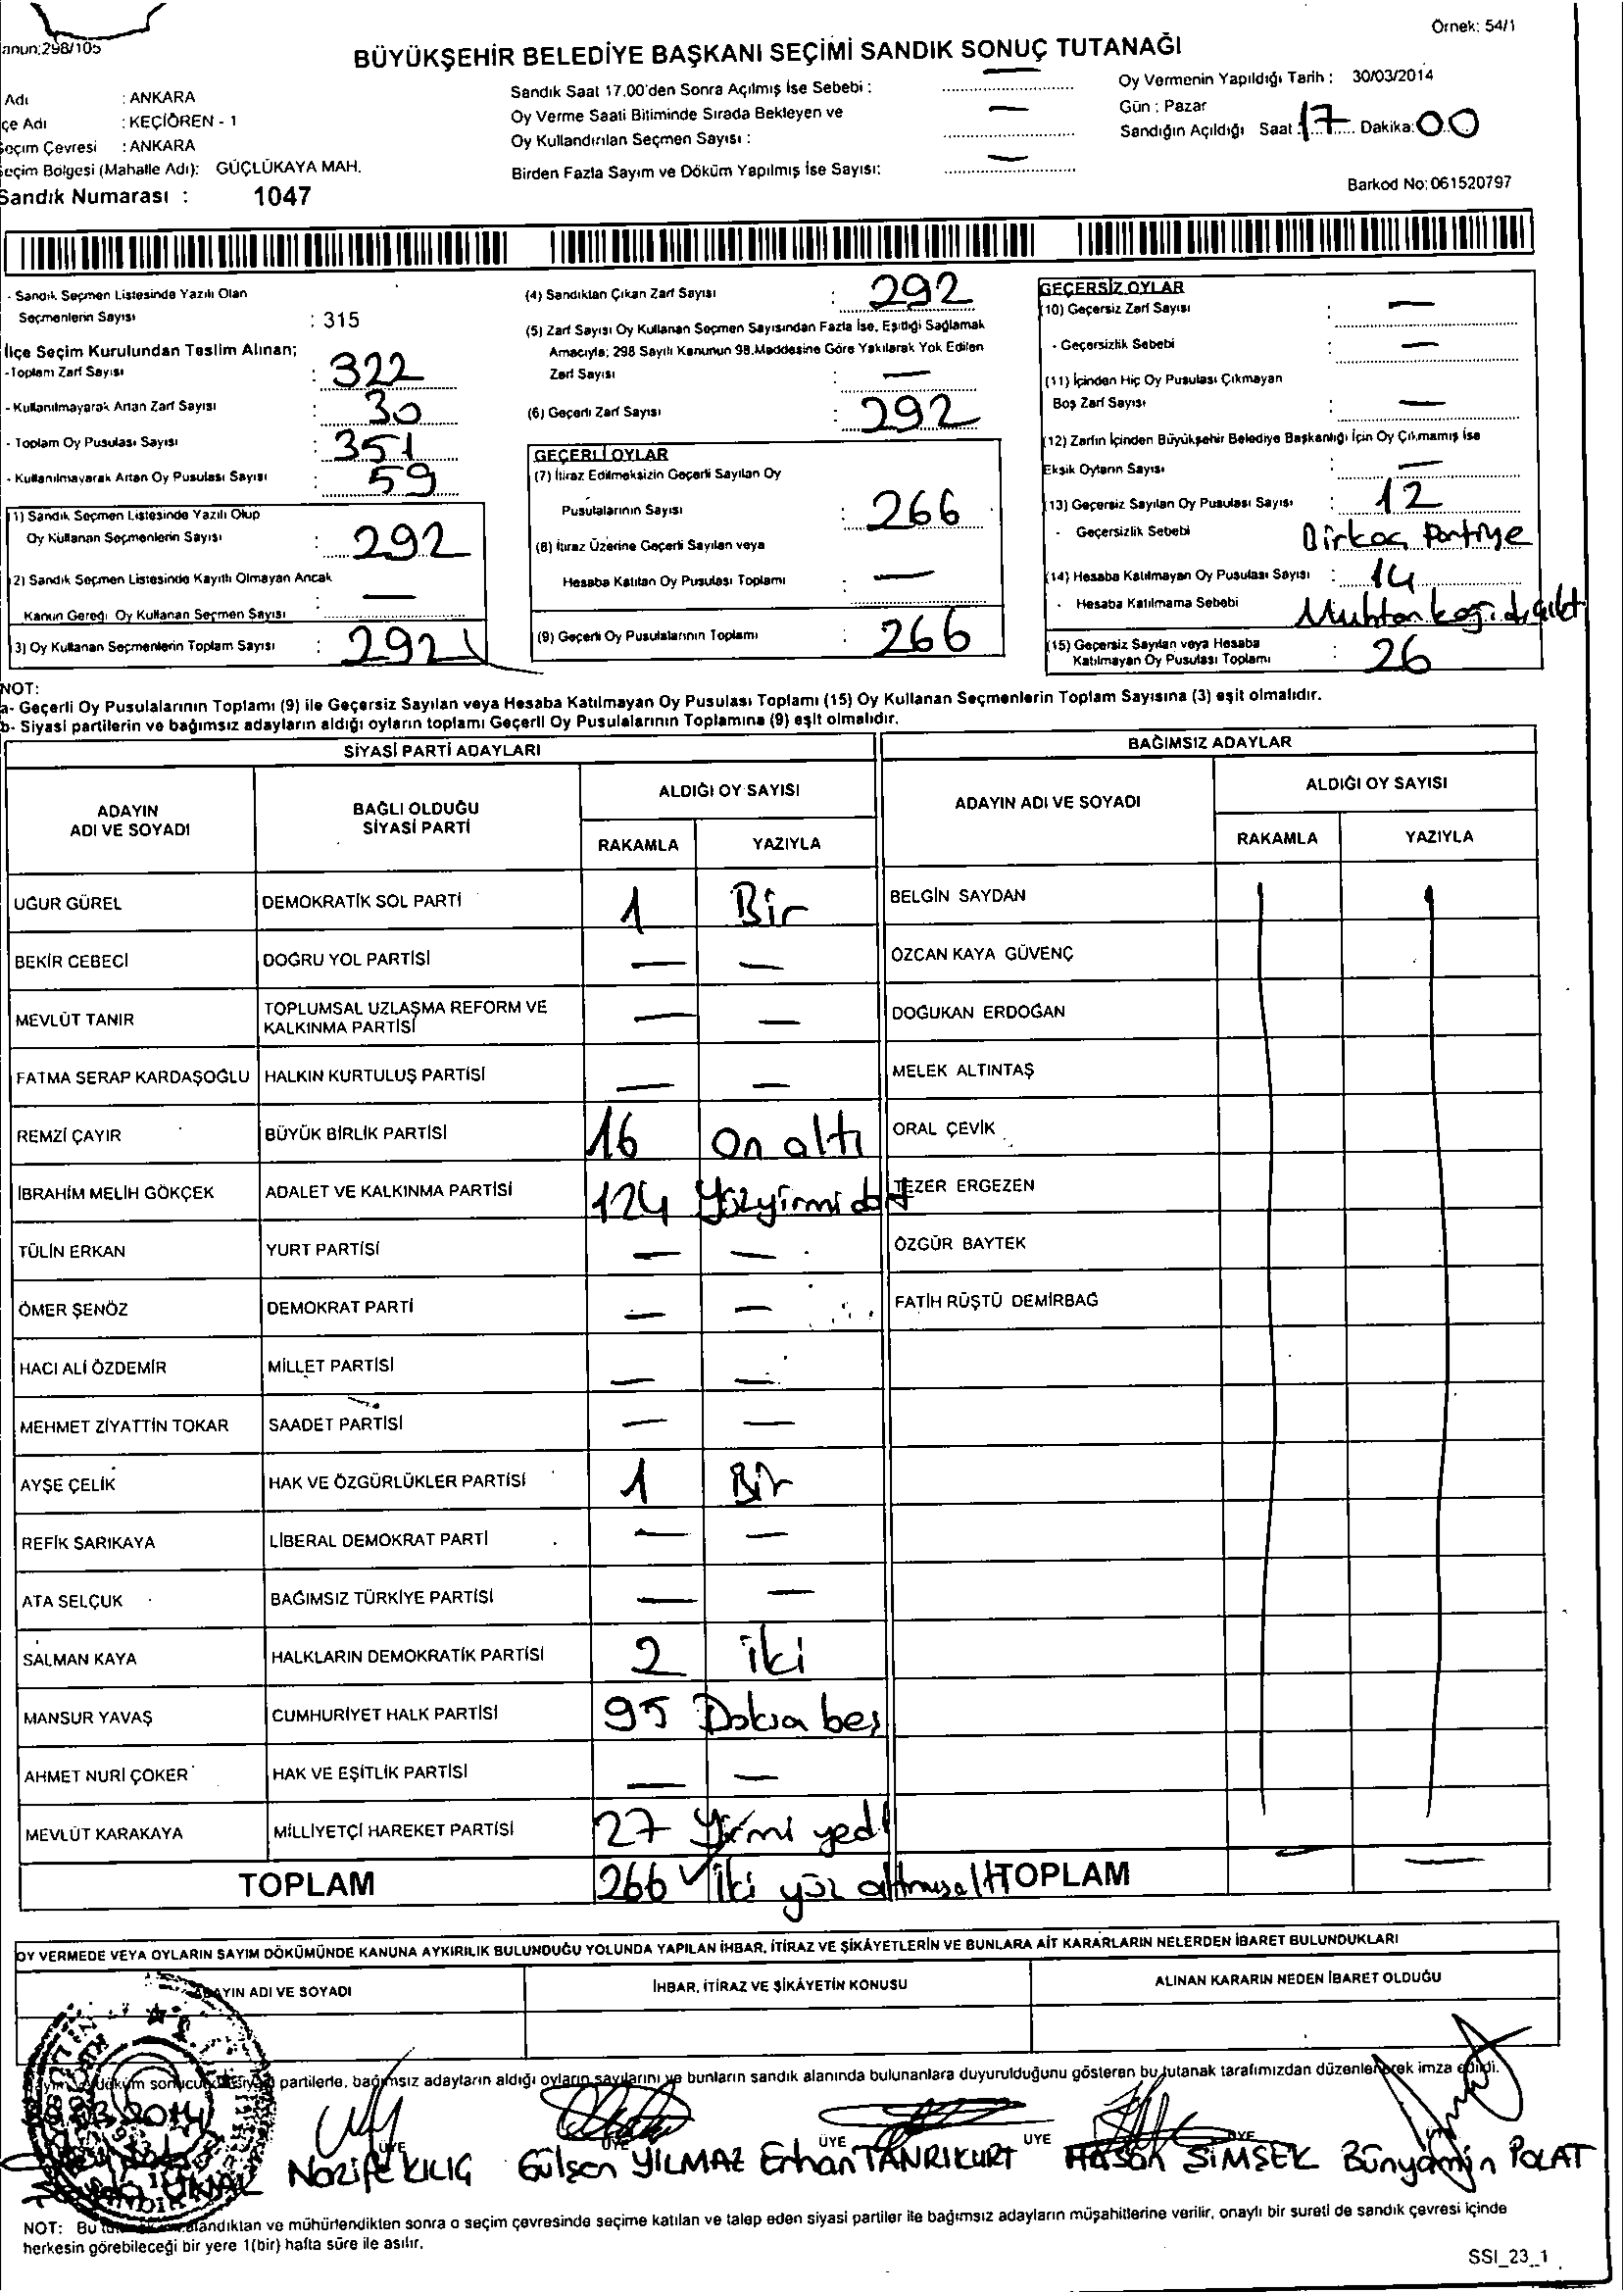 anun:298/105
Örnek: 54/1
BÜYÜKŞEHİR BELEDİYE BAŞKANI SEÇİMİ SANDIK SONUÇ TUTANAĞI
Adı : ANKARA
çe Adı : KEÇİÖREN - 1
eçim Çevresi : ANKARA
eçim Bölgesi (Mahalle Adı): GÜÇLÜKAYA MAH.
Sandık Numarası : 1047
Sandık Saat 17.00'den Sonra Açılmış İse Sebebi : —
Oy Verme Saati Bitiminde Sırada Bekleyen ve
Oy Kullandırılan Seçmen Sayısı : —
Birden Fazla Sayım ve Döküm Yapılmış İse Sayısı: —
Oy Vermenin Yapıldığı Tarih : 30/03/2014
Gün : Pazar
Sandığın Açıldığı Saat : 17 Dakika: 00
Barkod No: 061520797
- Sandık Seçmen Listesinde Yazılı Olan
Seçmenlerin Sayısı : 315
İlçe Seçim Kurulundan Teslim Alınan;
-Toplam Zarf Sayısı : 322
- Kullanılmayarak Artan Zarf Sayısı : 30
- Toplam Oy Pusulası Sayısı : 351
- Kullanılmayarak Artan Oy Pusulası Sayısı : 59
1) Sandık Seçmen Listesinde Yazılı Olup
Oy Kullanan Seçmenlerin Sayısı : 292
2) Sandık Seçmen Listesinde Kayıtlı Olmayan Ancak
Kanun Gereği Oy Kullanan Seçmen Sayısı : —
3) Oy Kullanan Seçmenlerin Toplam Sayısı : 292
(4) Sandıktan Çıkan Zarf Sayısı : 292
(5) Zarf Sayısı Oy Kullanan Seçmen Sayısından Fazla İse, Eşitliği Sağlamak
Amacıyla; 298 Sayılı Kanunun 98.Maddesine Göre Yakılarak Yok Edilen
Zarf Sayısı : —
(6) Geçerli Zarf Sayısı : 292
GEÇERLİ OYLAR
(7) İtiraz Edilmeksizin Geçerli Sayılan Oy
Pusulalarının Sayısı : 266
(8) İtiraz Üzerine Geçerli Sayılan veya
Hesaba Katılan Oy Pusulası Toplamı : —
(9) Geçerli Oy Pusulalarının Toplamı : 266
GEÇERSİZ OYLAR
(10) Geçersiz Zarf Sayısı : —
- Geçersizlik Sebebi : —
(11) İçinden Hiç Oy Pusulası Çıkmayan
Boş Zarf Sayısı : —
(12) Zarfın İçinden Büyükşehir Belediye Başkanlığı İçin Oy Çıkmamış İse
Eksik Oyların Sayısı : —
(13) Geçersiz Sayılan Oy Pusulası Sayısı : 12
- Geçersizlik Sebebi Birkaç Partiye
(14) Hesaba Katılmayan Oy Pusulası Sayısı : 14
- Hesaba Katılmama Sebebi Muhtar
(15) Geçersiz Sayılan veya Hesaba
Katılmayan Oy Pusulası Toplamı : 26
NOT:
a- Geçerli Oy Pusulalarının Toplamı (9) ile Geçersiz Sayılan veya Hesaba Katılmayan Oy Pusulası Toplamı (15) Oy Kullanan Seçmenlerin Toplam Sayısına (3) eşit olmalıdır.
b- Siyasi partilerin ve bağımsız adayların aldığı oyların toplamı Geçerli Oy Pusulalarının Toplamına (9) eşit olmalıdır.
SİYASİ PARTİ ADAYLARI BAĞIMSIZ ADAYLAR
ADAYIN ADI VE SOYADI BAĞLI OLDUĞU SİYASİ PARTİ ALDIĞI OY SAYISI ADAYIN ADI VE SOYADI ALDIĞI OY SAYISI
RAKAMLA YAZIYLA RAKAMLA YAZIYLA
UĞUR GÜREL DEMOKRATİK SOL PARTİ 1 Bir BELGİN SAYDAN
BEKİR CEBECİ DOĞRU YOL PARTİSİ — — ÖZCAN KAYA GÜVENÇ
MEVLÜT TANIR TOPLUMSAL UZLAŞMA REFORM VE KALKINMA PARTİSİ — — DOĞUKAN ERDOĞAN
FATMA SERAP KARDAŞOĞLU HALKIN KURTULUŞ PARTİSİ — — MELEK ALTINTAŞ
REMZİ ÇAYIR BÜYÜK BİRLİK PARTİSİ 16 On altı ORAL ÇEVİK
İBRAHİM MELİH GÖKÇEK ADALET VE KALKINMA PARTİSİ 124 Yüzyirmi dört TEZER ERGEZEN
TÜLİN ERKAN YURT PARTİSİ — — ÖZGÜR BAYTEK
ÖMER ŞENÖZ DEMOKRAT PARTİ — — FATİH RÜŞTÜ DEMİRBAĞ
HACI ALİ ÖZDEMİR MİLLET PARTİSİ — —
MEHMET ZİYATTİN TOKAR SAADET PARTİSİ — —
AYŞE ÇELİK HAK VE ÖZGÜRLÜKLER PARTİSİ 1 Bir
REFİK SARIKAYA LİBERAL DEMOKRAT PARTİ — —
ATA SELÇUK BAĞIMSIZ TÜRKİYE PARTİSİ — —
SALMAN KAYA HALKLARIN DEMOKRATİK PARTİSİ 2 iki
MANSUR YAVAŞ CUMHURİYET HALK PARTİSİ 95 Doksa beş
AHMET NURİ ÇOKER HAK VE EŞİTLİK PARTİSİ — —
MEVLÜT KARAKAYA MİLLİYETÇİ HAREKET PARTİSİ 27 Yirmi yedi
TOPLAM 266 iki yüz altmışaltı TOPLAM — —
OY VERMEDE VEYA OYLARIN SAYIM DÖKÜMÜNDE KANUNA AYKIRILIK BULUNDUĞU YOLUNDA YAPILAN İHBAR, İTİRAZ VE ŞİKAYETLERİN VE BUNLARA AİT KARARLARIN NELERDEN İBARET BULUNDUKLARI
ADAYIN ADI VE SOYADI İHBAR, İTİRAZ VE ŞİKAYETİN KONUSU ALINAN KARARIN NEDEN İBARET OLDUĞU
partilerle, bağımsız adayların aldığı oyların sayılarını ve bunların sandık alanında bulunanlara duyurulduğunu gösteren bu tutanak tarafımızdan düzenlenerek imza edildi.
ÜYE ÜYE ÜYE ÜYE ÜYE
Nazife KILIÇ Gülşen YILMAZ Erhan TANRIKURT Hasan ŞİMŞEK Bünyamin POLAT
NOT: Bu landıktan ve mühürlendikten sonra o seçim çevresinde seçime katılan ve talep eden siyasi partiler ile bağımsız adayların müşahitlerine verilir, onaylı bir sureti de sandık çevresi içinde
herkesin görebileceği bir yere 1(bir) hafta süre ile asılır.
SSI_23_1